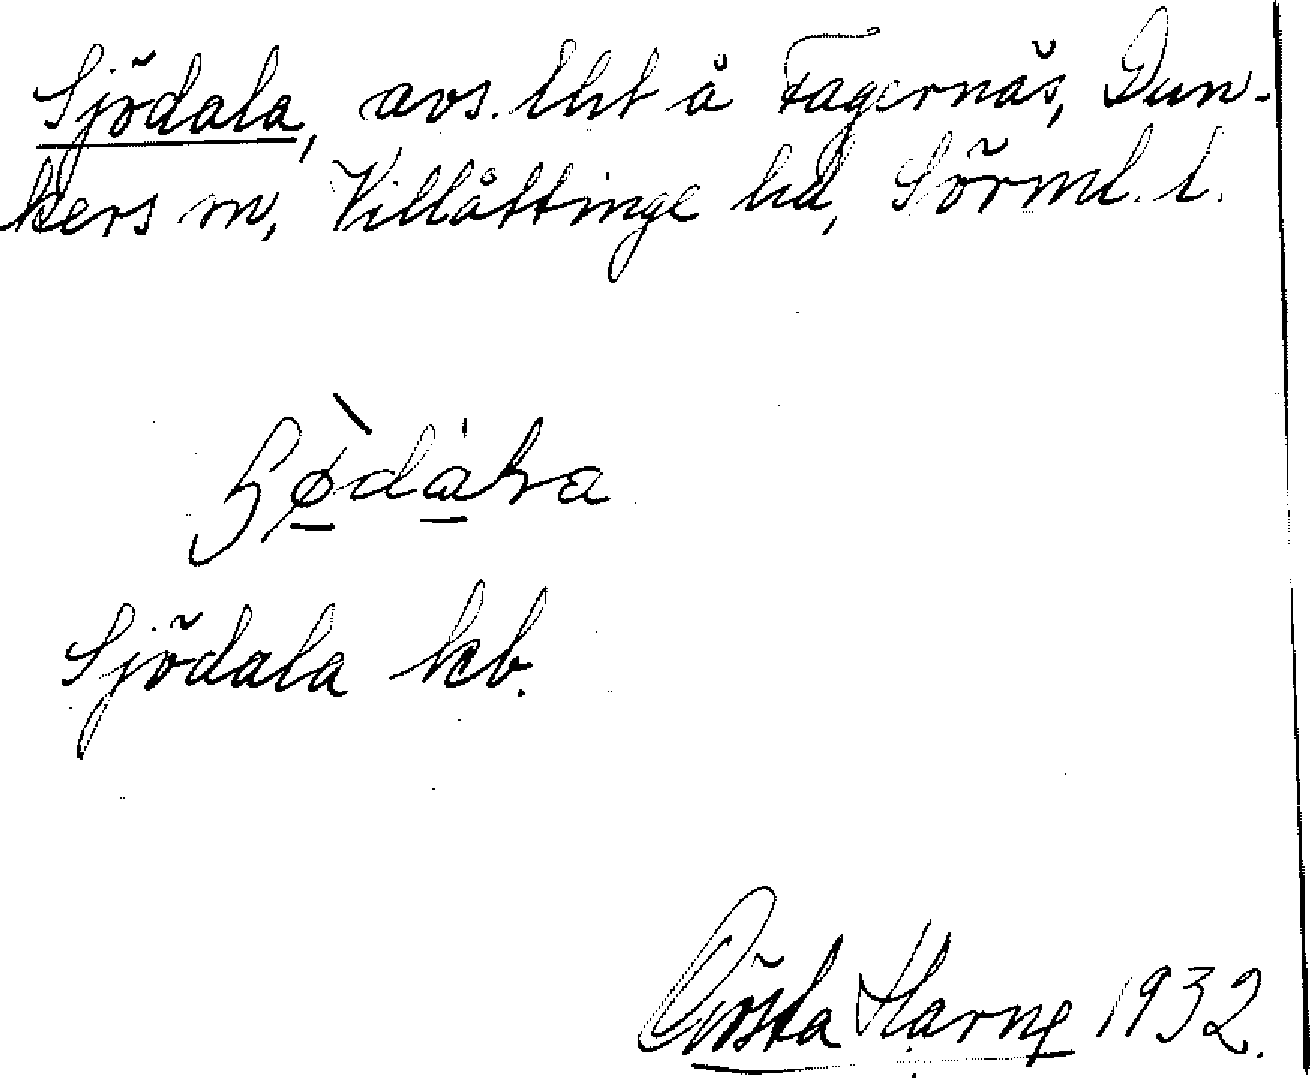 Sjödala, avs. lht å Fagernäs, Dun-
kers sn, Villåttinge hd, Sörml. l.
Sjödala kb.
Gösta Harne 1932.